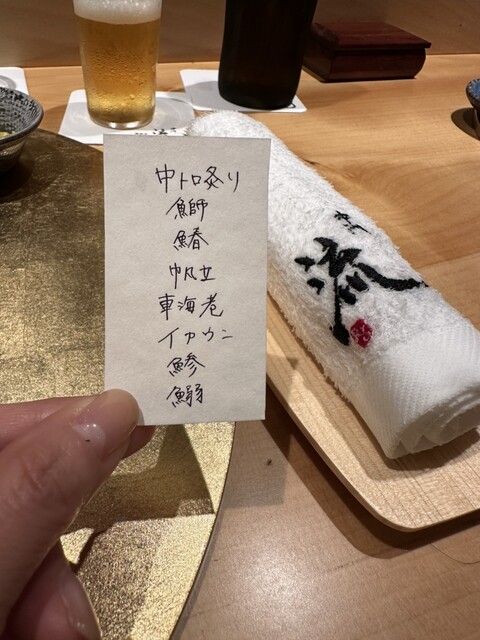 中トロ炙り
鰤
鰆
帆立
車海老
イカウニ
鯵
鰯
流